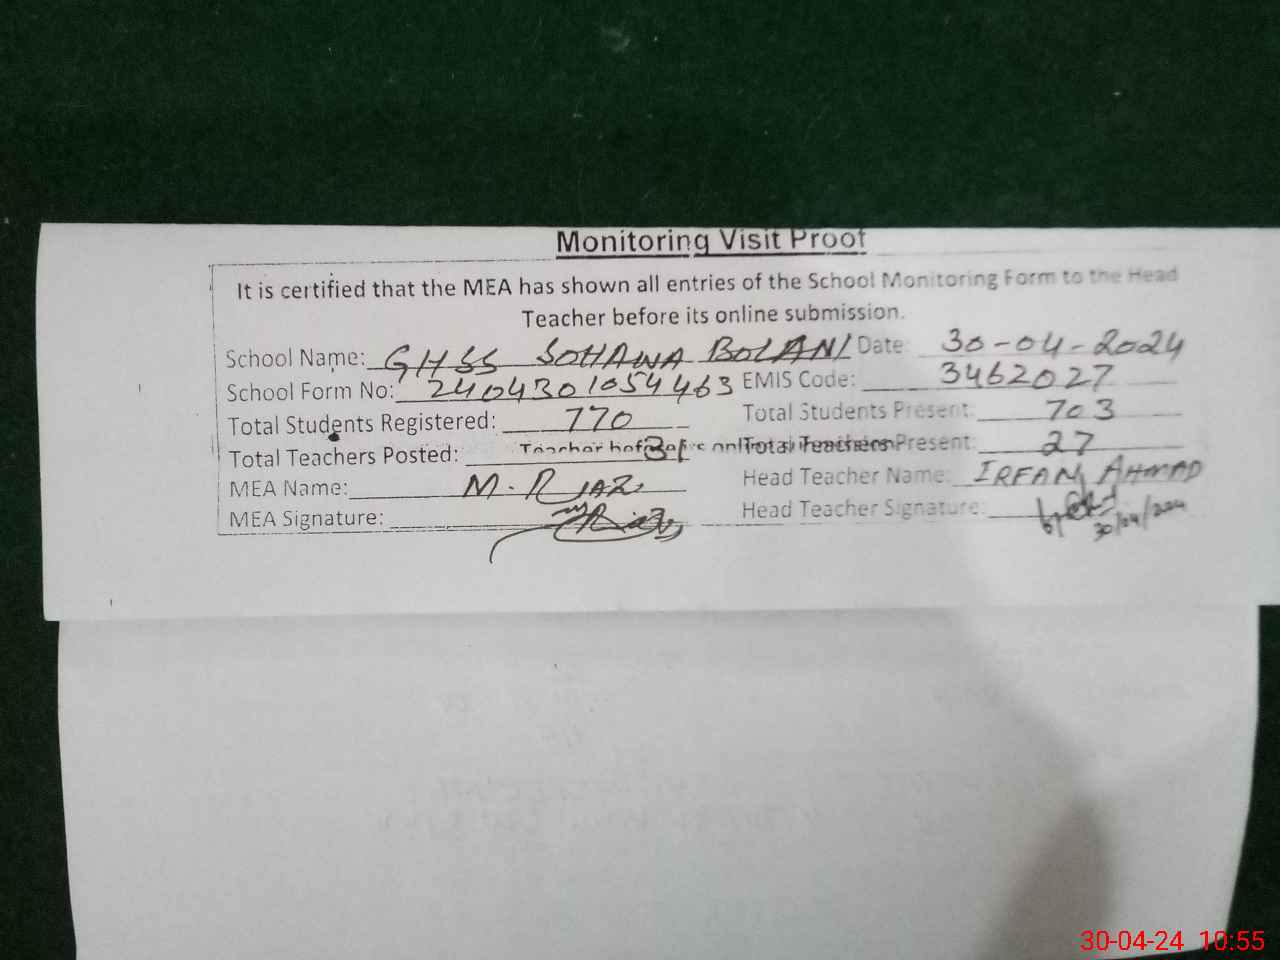 Monitoring Visit Proof
It is certified that the MEA has shown all entries of the School Monitoring Form to the Head
Teacher before its online submission.
School Name: GHSS SOHAWA BOLANI Date: 30-04-2024
School Form No: 2404301054463 EMIS Code: 3462027
Total Students Registered: 770 Total Students Present: 703
Total Teachers Posted: 31 Total Teachers Present: 27
MEA Name: M. RIAZ Head Teacher Name: IRFAN AHMAD
MEA Signature: Head Teacher Signature:
30/04/2024
30-04-24 10:55